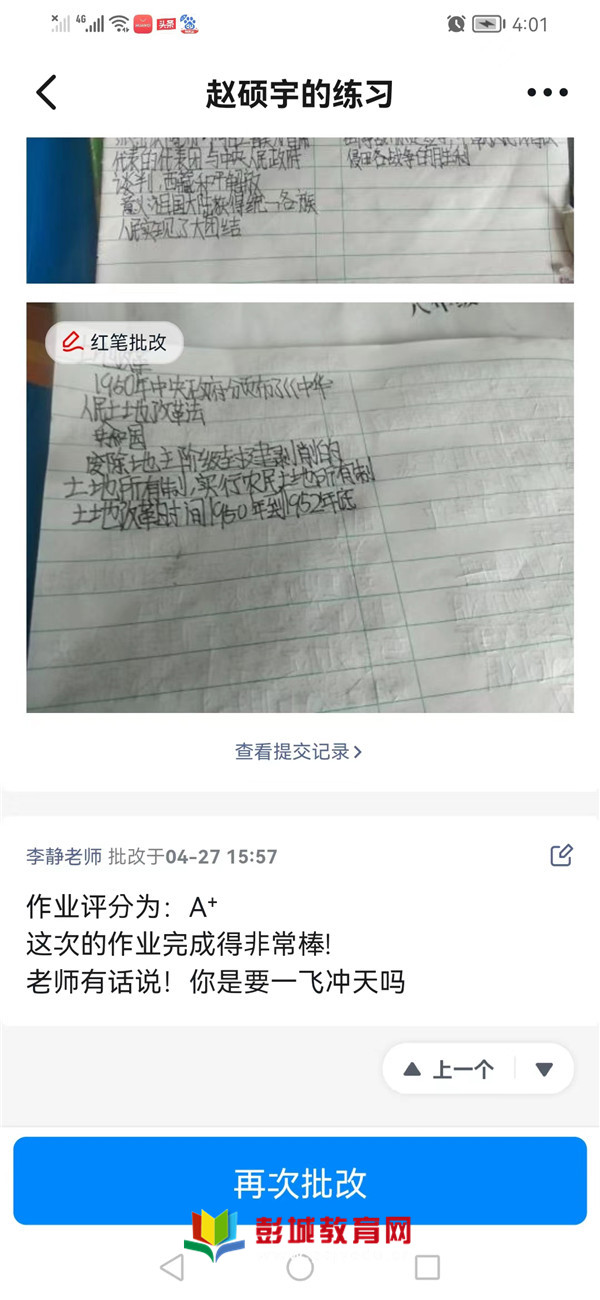 4G 头条 4:01
赵硕宇的练习
代表的代表团与中央人民政府
谈判,西藏和平解放
意义:祖国大陆获得统一各族
人民实现了大团结
红笔批改
1950年中央政府分颁布了《中华
人民土地改革法
共和国
废除地主阶级封建剥削的
土地所有制,实行农民土地所有制
土地改革时间1950年到1952年底
查看提交记录
李静老师 批改于04-27 15:57
作业评分为：A⁺
这次的作业完成得非常棒!
老师有话说！你是要一飞冲天吗
上一个
再次批改
彭城教育网